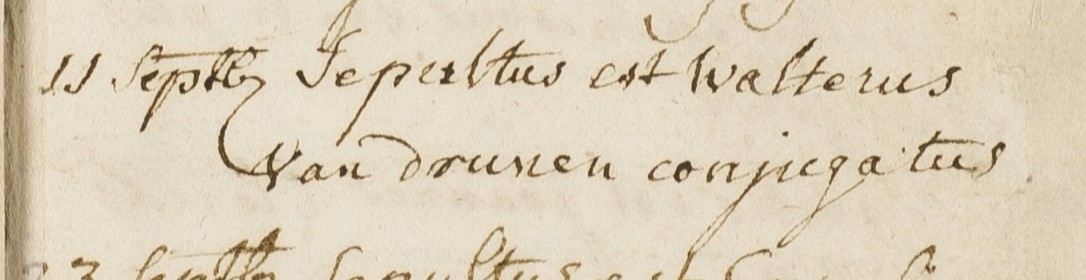 11 Septb Sepultus est Walterus
Van drunen conjugatus
Septb Sepultus est